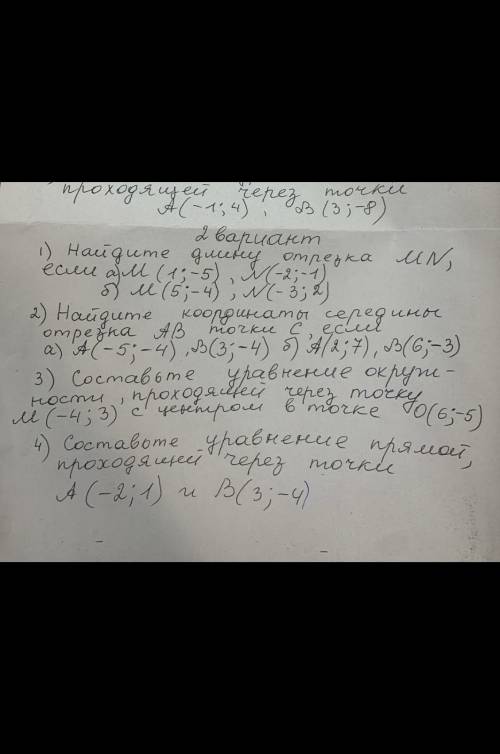 проходящей через точки
А(-1; 4), В(3; -8)
2 вариант
1) Найдите длину отрезка MN,
если а) M(1; -5), N(-2; -1)
б) M(5; -4), N(-3; 2)
2) Найдите координаты середины
отрезка АВ точки С, если
а) А(-5; -4), В(3; -4) б) А(2; 7), В(6; -3)
3) Составьте уравнение окруж-
ности, проходящей через точку
M(-4; 3) с центром в точке О(6; -5)
4) Составьте уравнение прямой,
проходящей через точки
А(-2; 1) и В(3; -4)